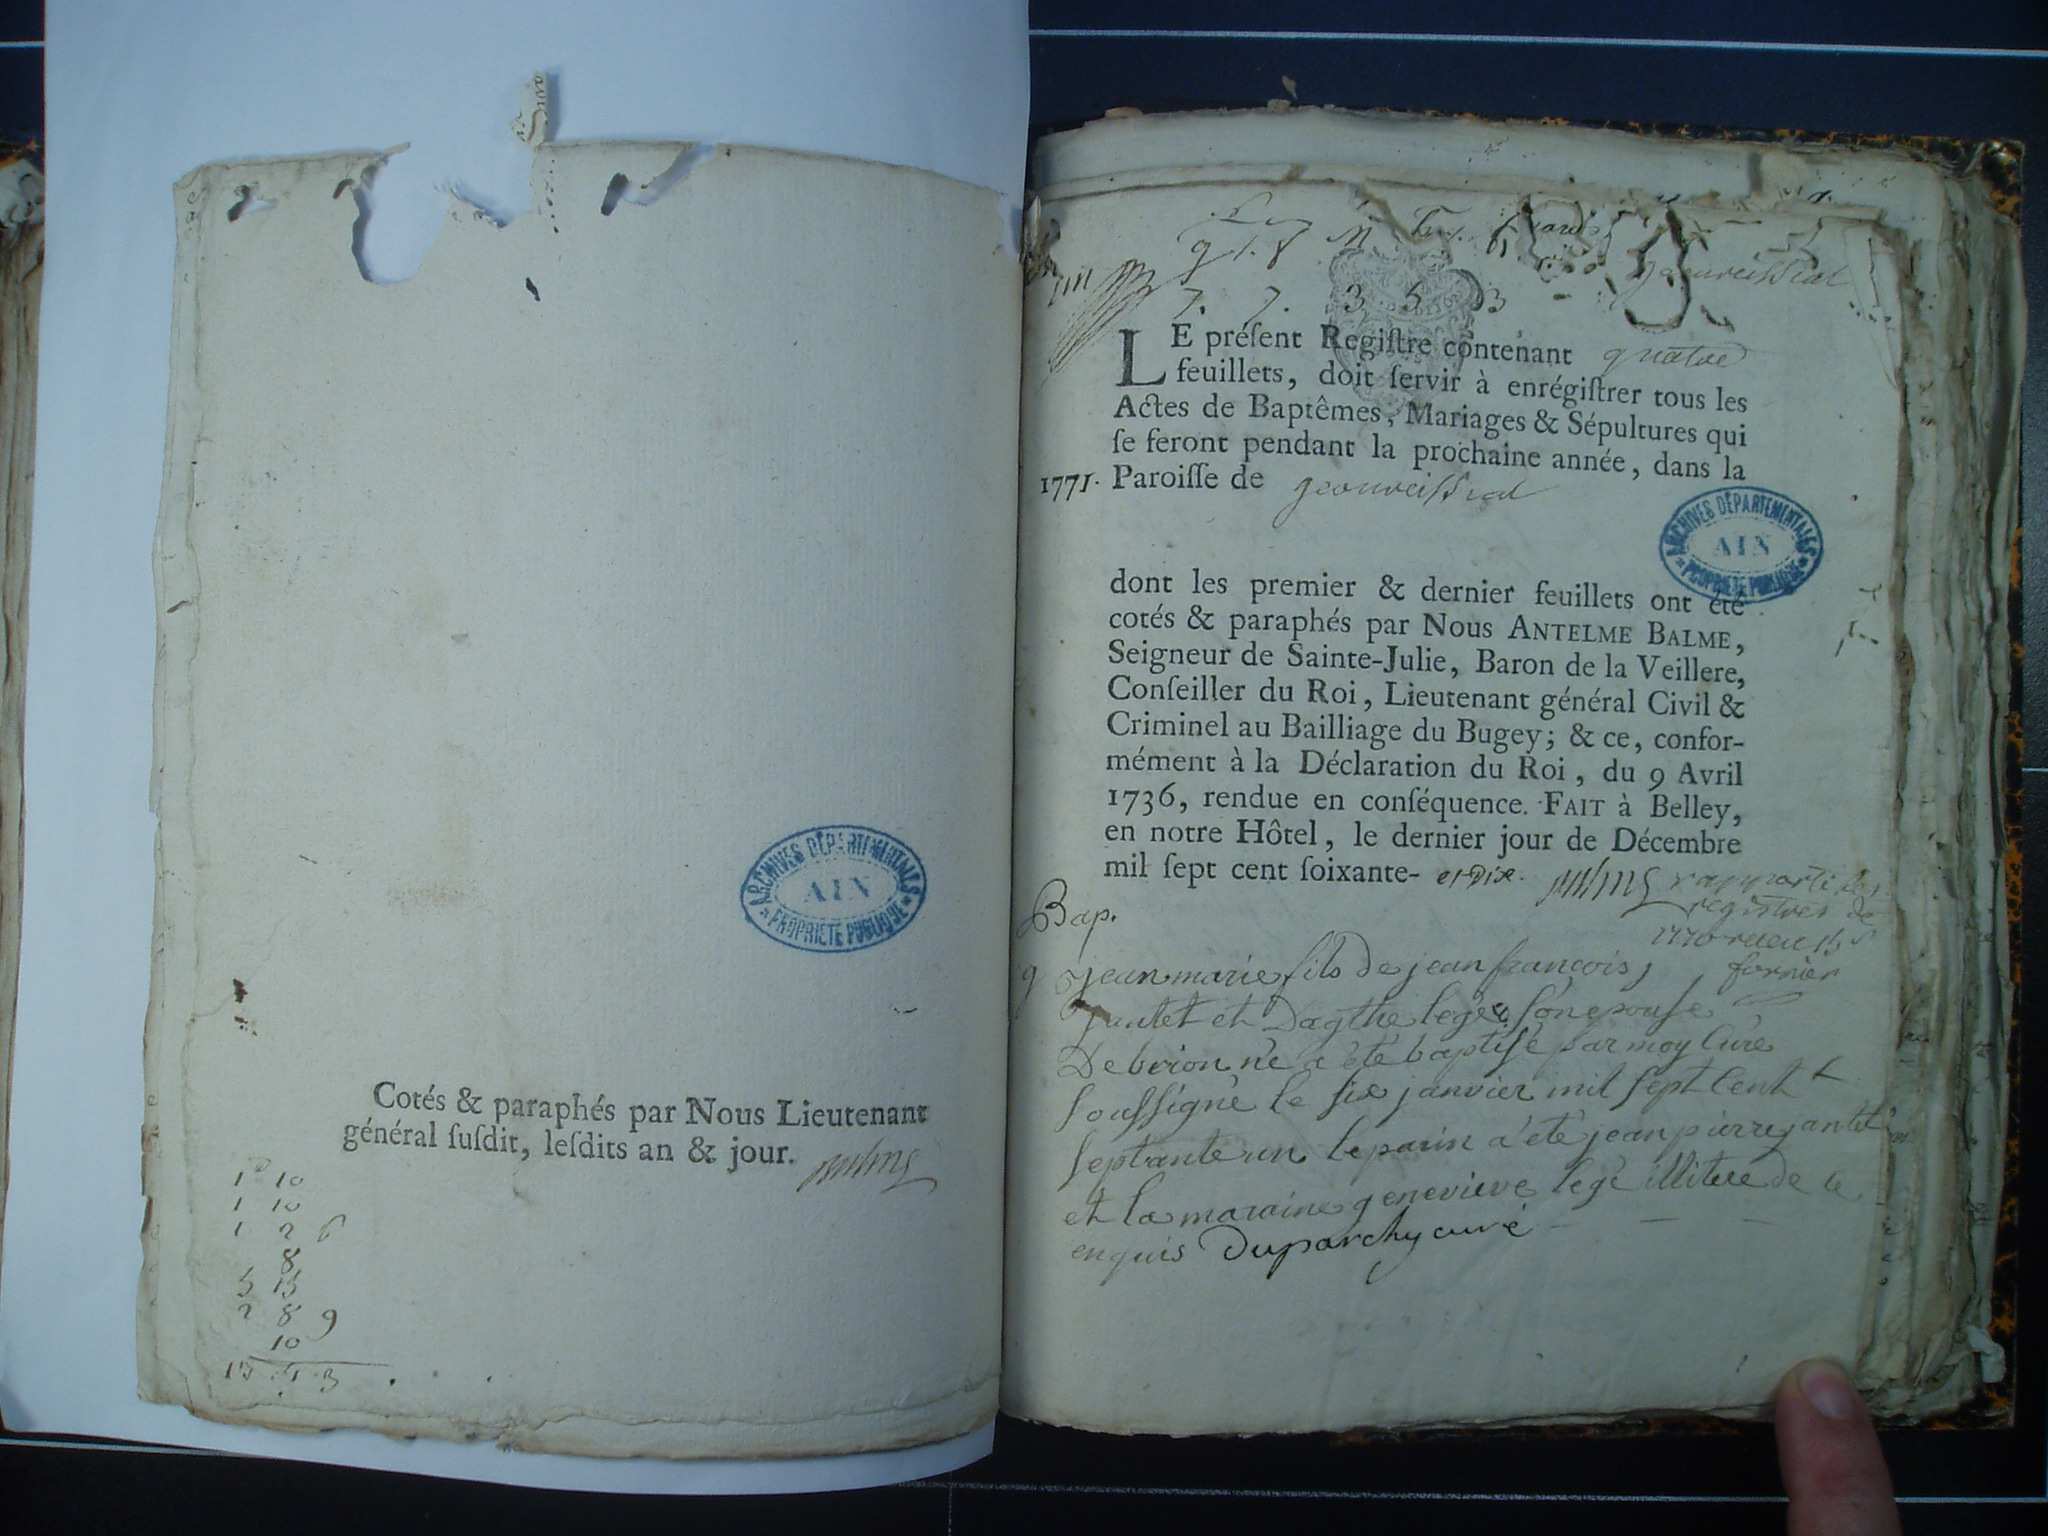 ARCHIVES DÉPARTEMENTALES
AIN
PROPRIÉTÉ PUBLIQUE
Cotés & paraphés par Nous Lieutenant
général ſuſdit, leſdits an & jour.
1 10
1 10
1 2 6
8
5 15
2 8 9
10
geoureissiat
7. 7. 3 5. 3
LE préſent Regiſtre contenant quatre
feuillets, doit ſervir à enrégiſtrer tous les
Actes de Baptêmes, Mariages & Sépultures qui
ſe feront pendant la prochaine année, dans la
1771. Paroiſſe de geoureissiat
ARCHIVES DÉPARTEMENTALES
AIN
PROPRIÉTÉ PUBLIQUE
dont les premier & dernier feuillets ont été
cotés & paraphés par Nous ANTELME BALME,
Seigneur de Sainte-Julie, Baron de la Veillere,
Conſeiller du Roi, Lieutenant général Civil &
Criminel au Bailliage du Bugey; & ce, confor-
mément à la Déclaration du Roi, du 9 Avril
1736, rendue en conſéquence. FAIT à Belley,
en notre Hôtel, le dernier jour de Décembre
mil ſept cent ſoixante- et Dix.
rapporté les
registres de
1770
fornier
Bap.
jean marie fils de jean francois
et Dagthe legé son epouse
De brion né a été baptisé par moy Curé
soussigné le six janvier mil sept cent
septante un le parin a été jean pierre
et la maraine genevieve legé illitere de ce
enquis Duparchy curé